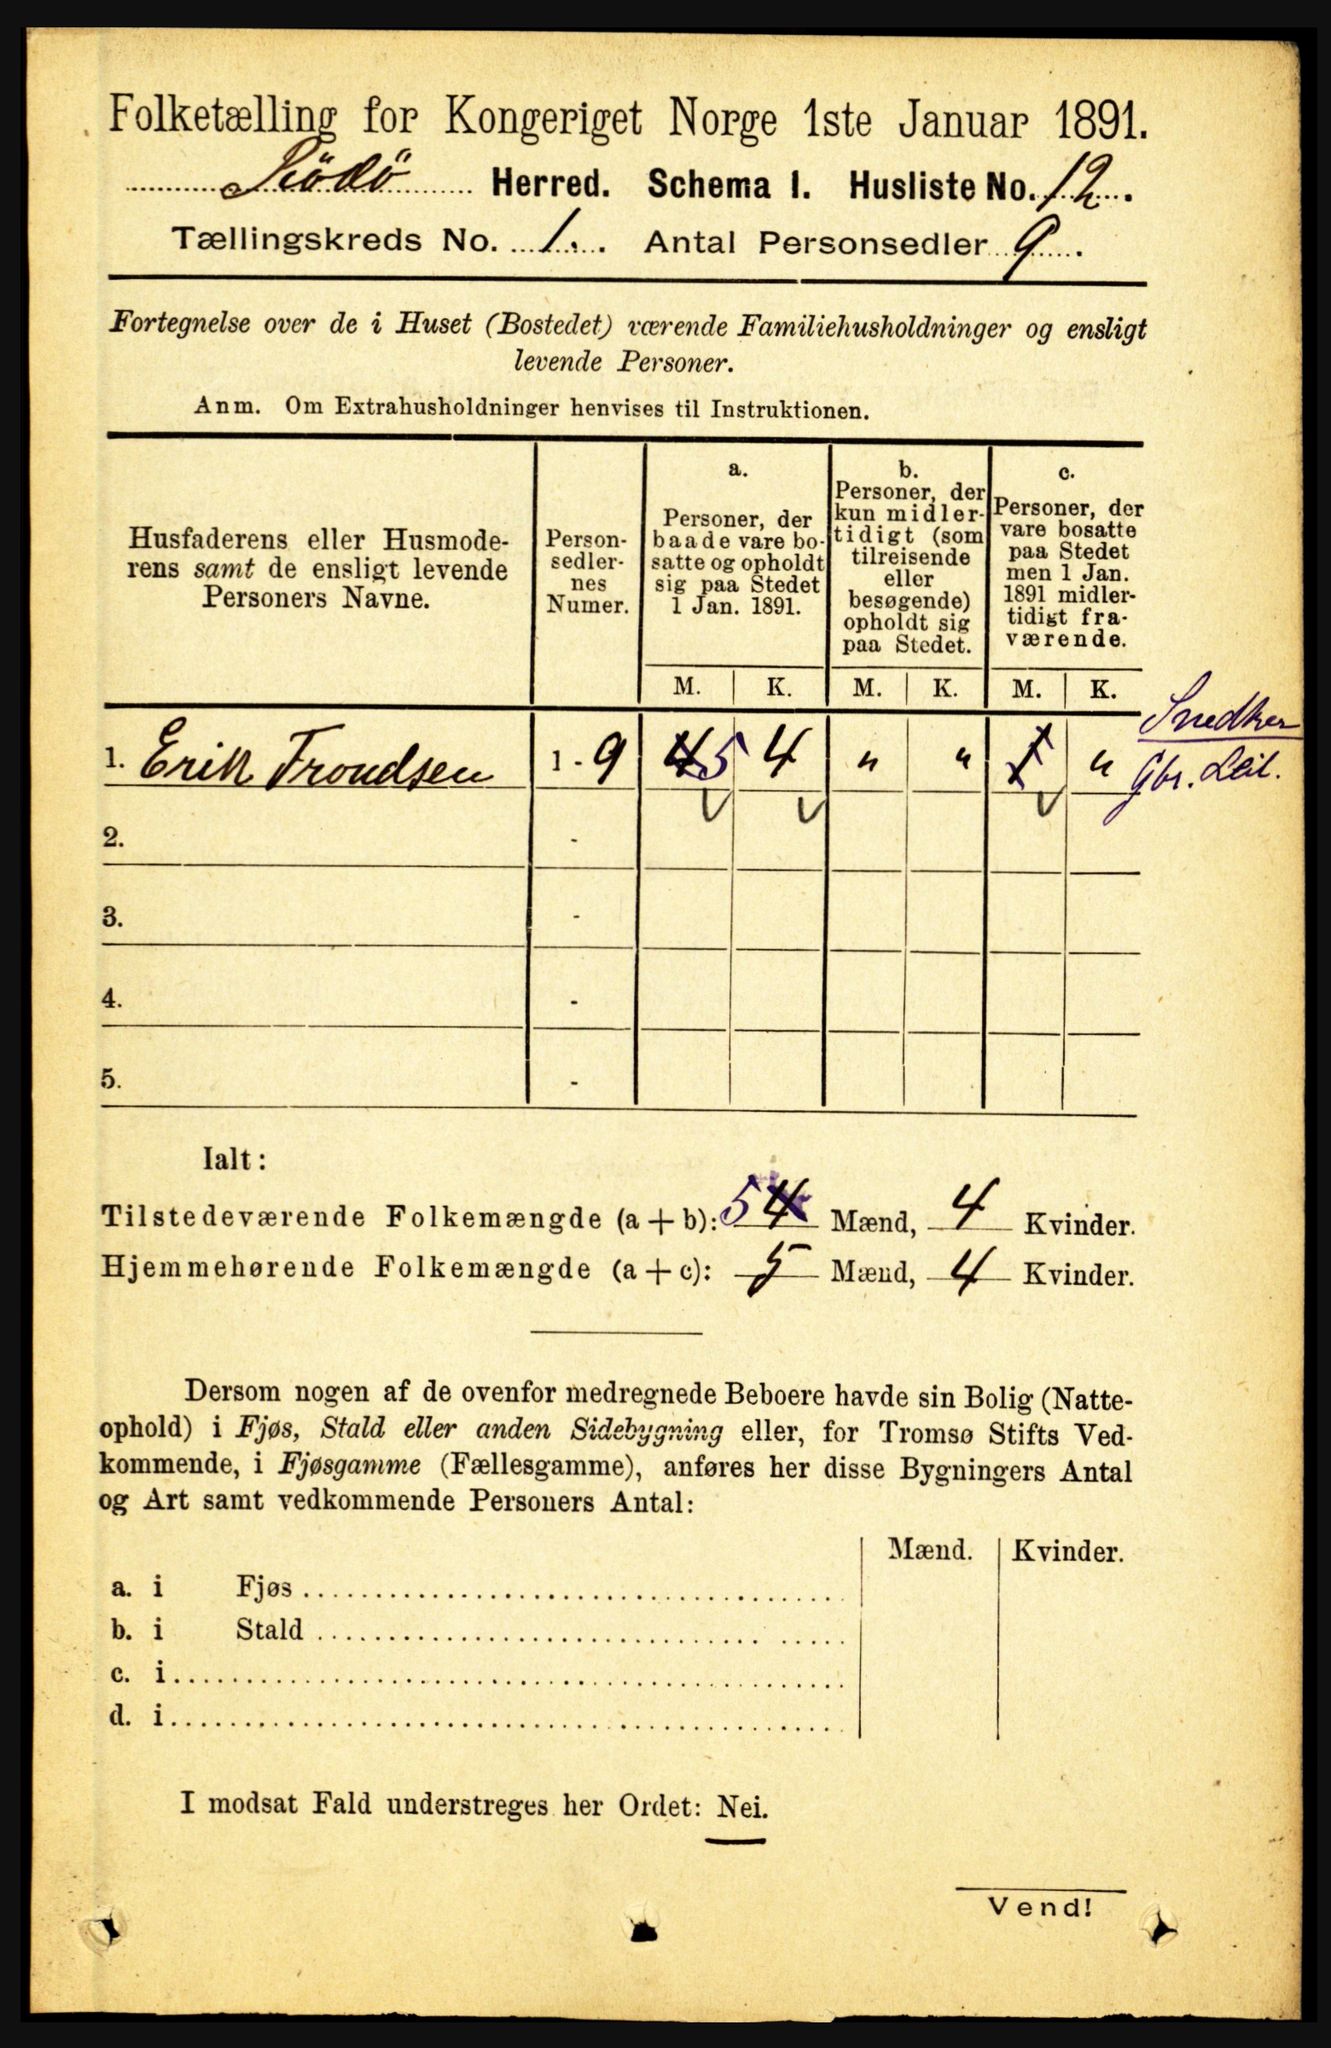 Folketælling for Kongeriget Norge 1ste Januar 1891.
Rödö Herred. Schema I. Husliste No. 12.
Tællingskreds No. 1. Antal Personsedler 9.
Fortegnelse over de i Huset (Bostedet) værende Familiehusholdninger og ensligt
levende Personer.
Anm. Om Extrahusholdninger henvises til Instruktionen.
Husfaderens eller Husmode-
rens samt de ensligt levende
Personers Navne.
Person-
sedler-
nes
Numer.
a.
Personer, der
baade vare bo-
satte og opholdt
sig paa Stedet
1 Jan. 1891.
b.
Personer, der
kun midler-
tidigt (som
tilreisende
eller
besøgende)
opholdt sig
paa Stedet.
c.
Personer, der
vare bosatte
paa Stedet
men 1 Jan.
1891 midler-
tidigt fra-
værende.
M. K. M. K. M. K.
Snedker
1. Erik Trondsen 1 - 9 4 5 4 " " 1 " Gbr. Leil.
2. -
3. -
4. -
5. -
Ialt:
Tilstedeværende Folkemængde (a + b): 5 4 Mænd, 4 Kvinder.
Hjemmehørende Folkemængde (a + c): 5 Mænd, 4 Kvinder.
Dersom nogen af de ovenfor medregnede Beboere havde sin Bolig (Natte-
ophold) i Fjøs, Stald eller anden Sidebygning eller, for Tromsø Stifts Ved-
kommende, i Fjøsgamme (Fællesgamme), anføres her disse Bygningers Antal
og Art samt vedkommende Personers Antal:
Mænd. Kvinder.
a. i Fjøs
b. i Stald
c. i
d. i
I modsat Fald understreges her Ordet: Nei.
Vend!